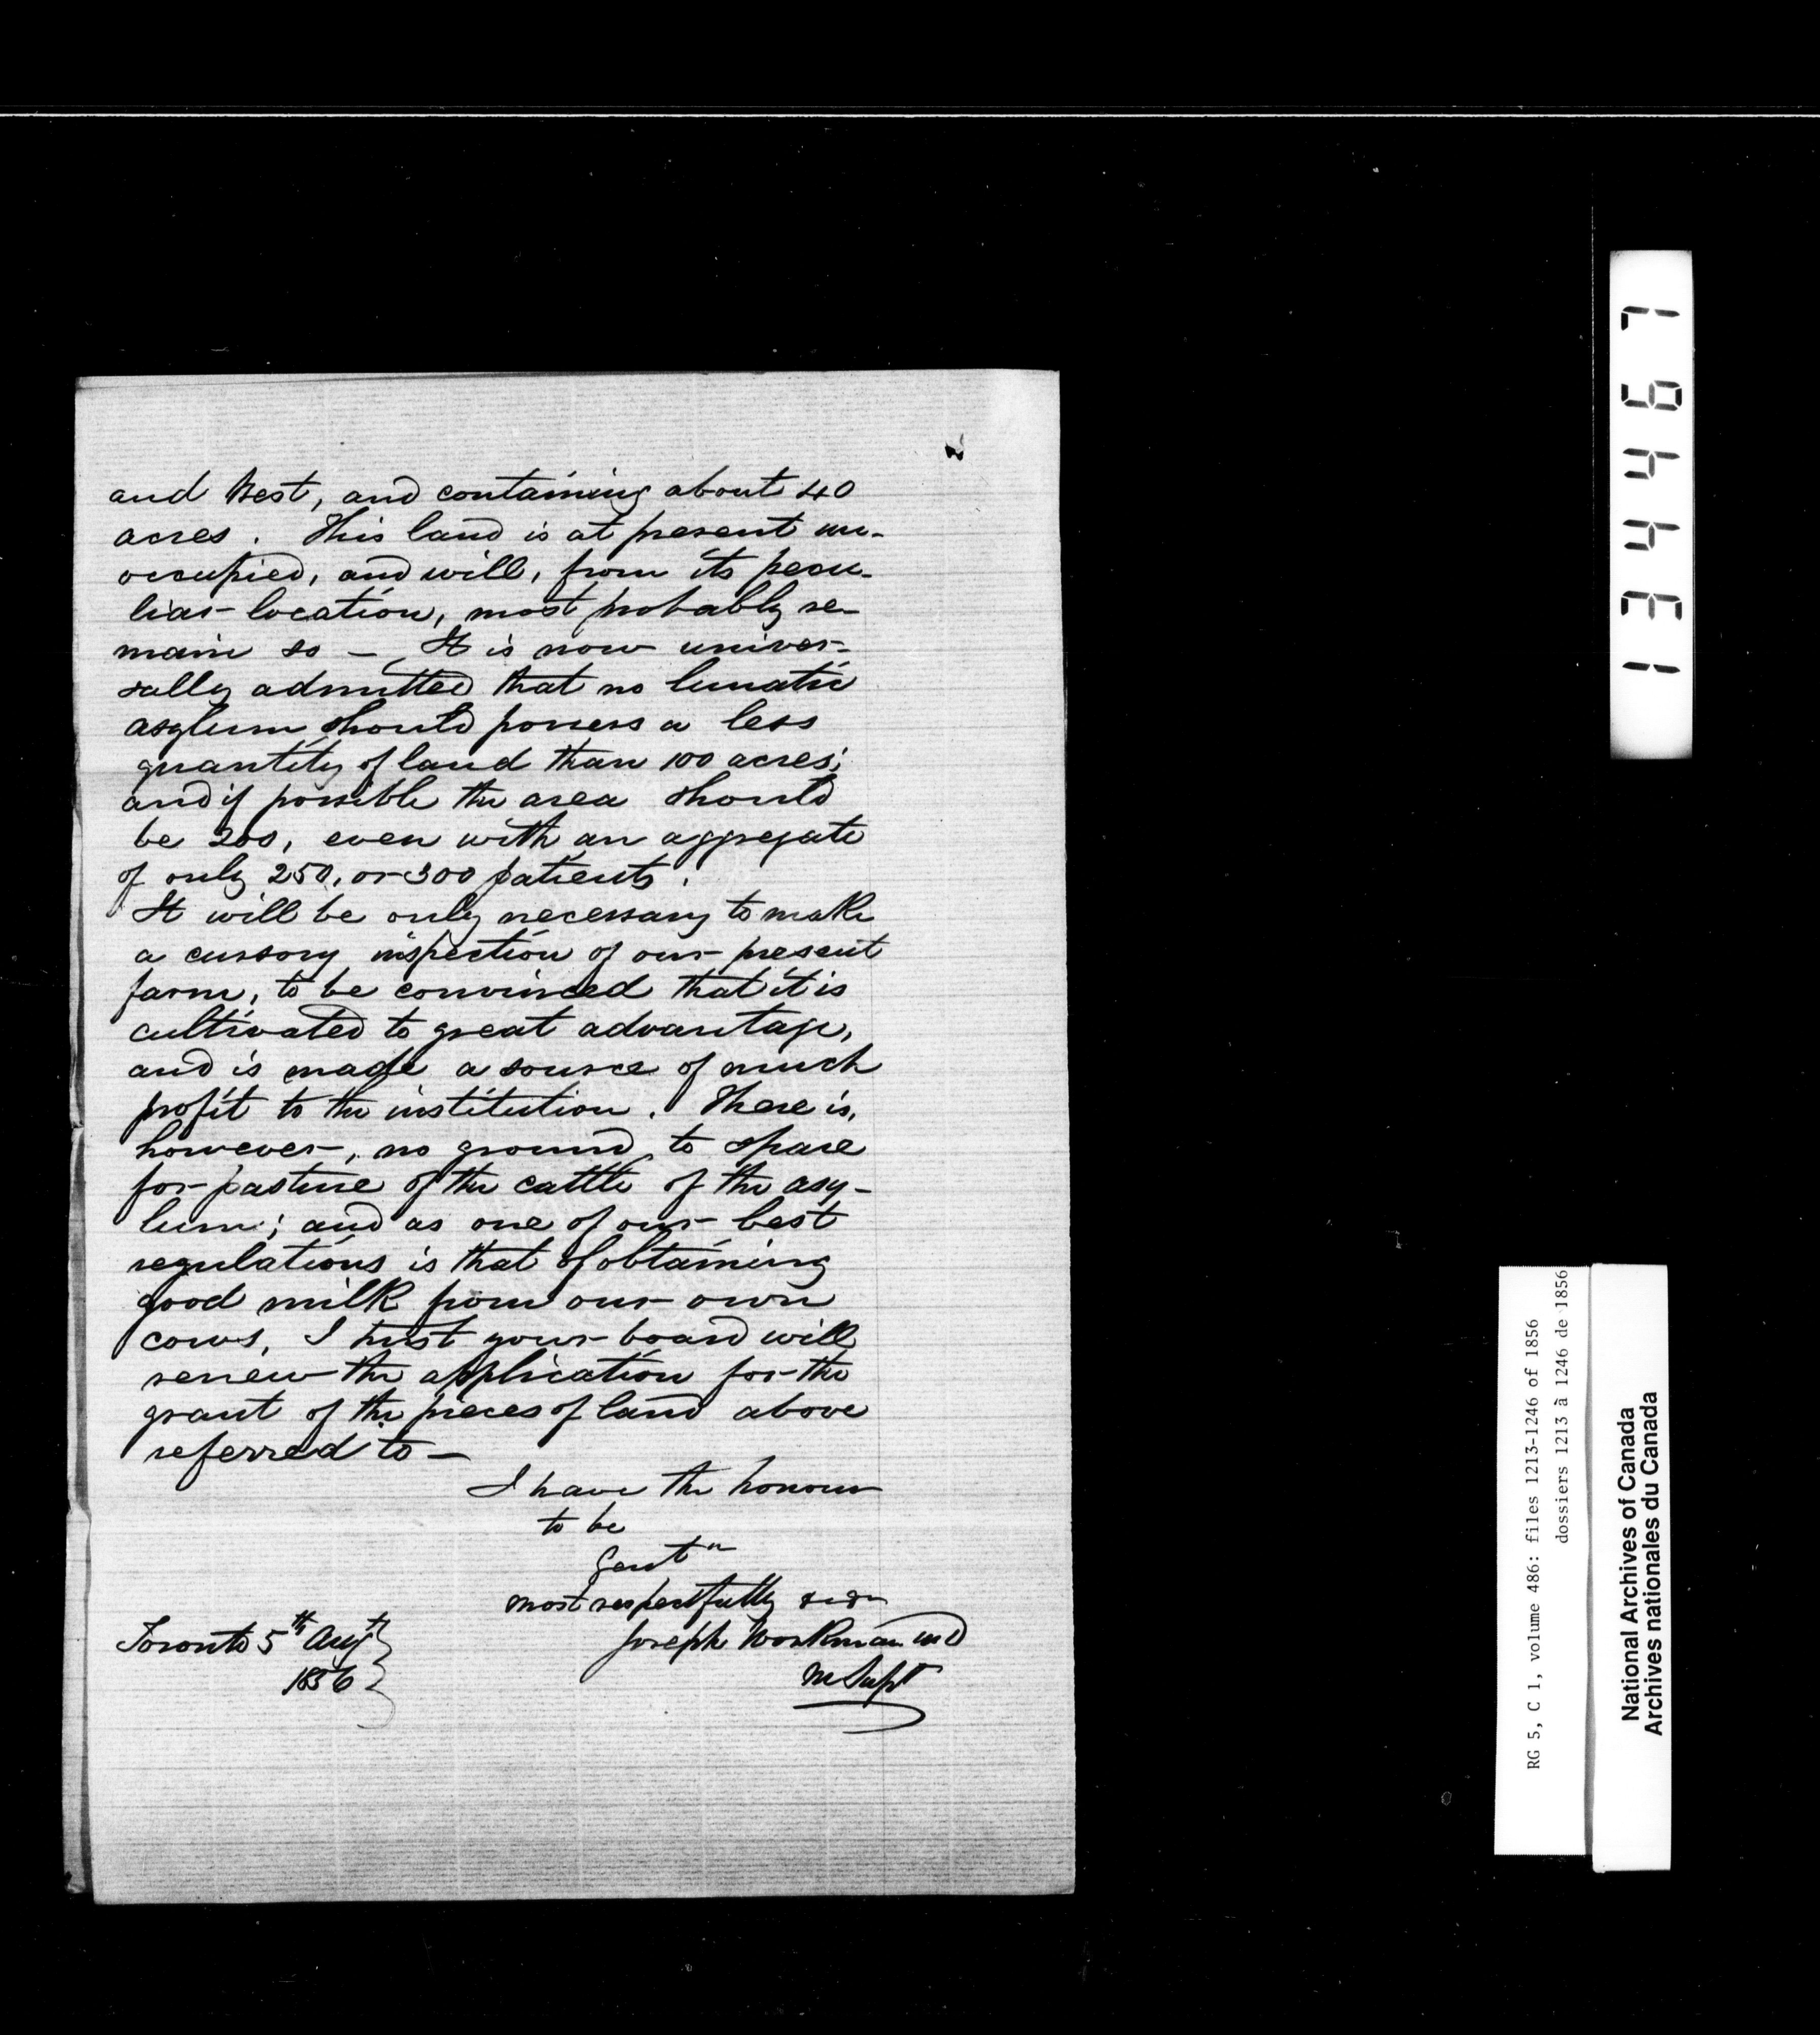 and West, and containing about 40
acres. This land is at present un-
occupied, and will, from its pecu-
liar location, most probably re-
main so — It is now univer-
sally admitted that no lunatic
asylum should possess a less
quantity of land than 100 acres;
and if possible the area should
be 200, even with an aggregate
of only 250, or 300 patients.
It will be only necessary to make
a cursory inspection of our present
farm, to be convinced that it is
cultivated to great advantage,
and is made a source of much
profit to the institution. There is,
however, no ground to spare
for pasture of the cattle of the asy-
lum; and as one of our best
regulations is that of obtaining
good milk from our own
cows, I trust your board will
renew the application for the
grant of the pieces of land above
referred to —
I have the honour
to be
Gentn
most respectfully &c &c
Joseph Workman MD
M Supt
Toronto 5th Augt
1856
134467
RG 5, C 1, volume 486: files 1213-1246 of 1856
dossiers 1213 à 1246 de 1856
National Archives of Canada
Archives nationales du Canada